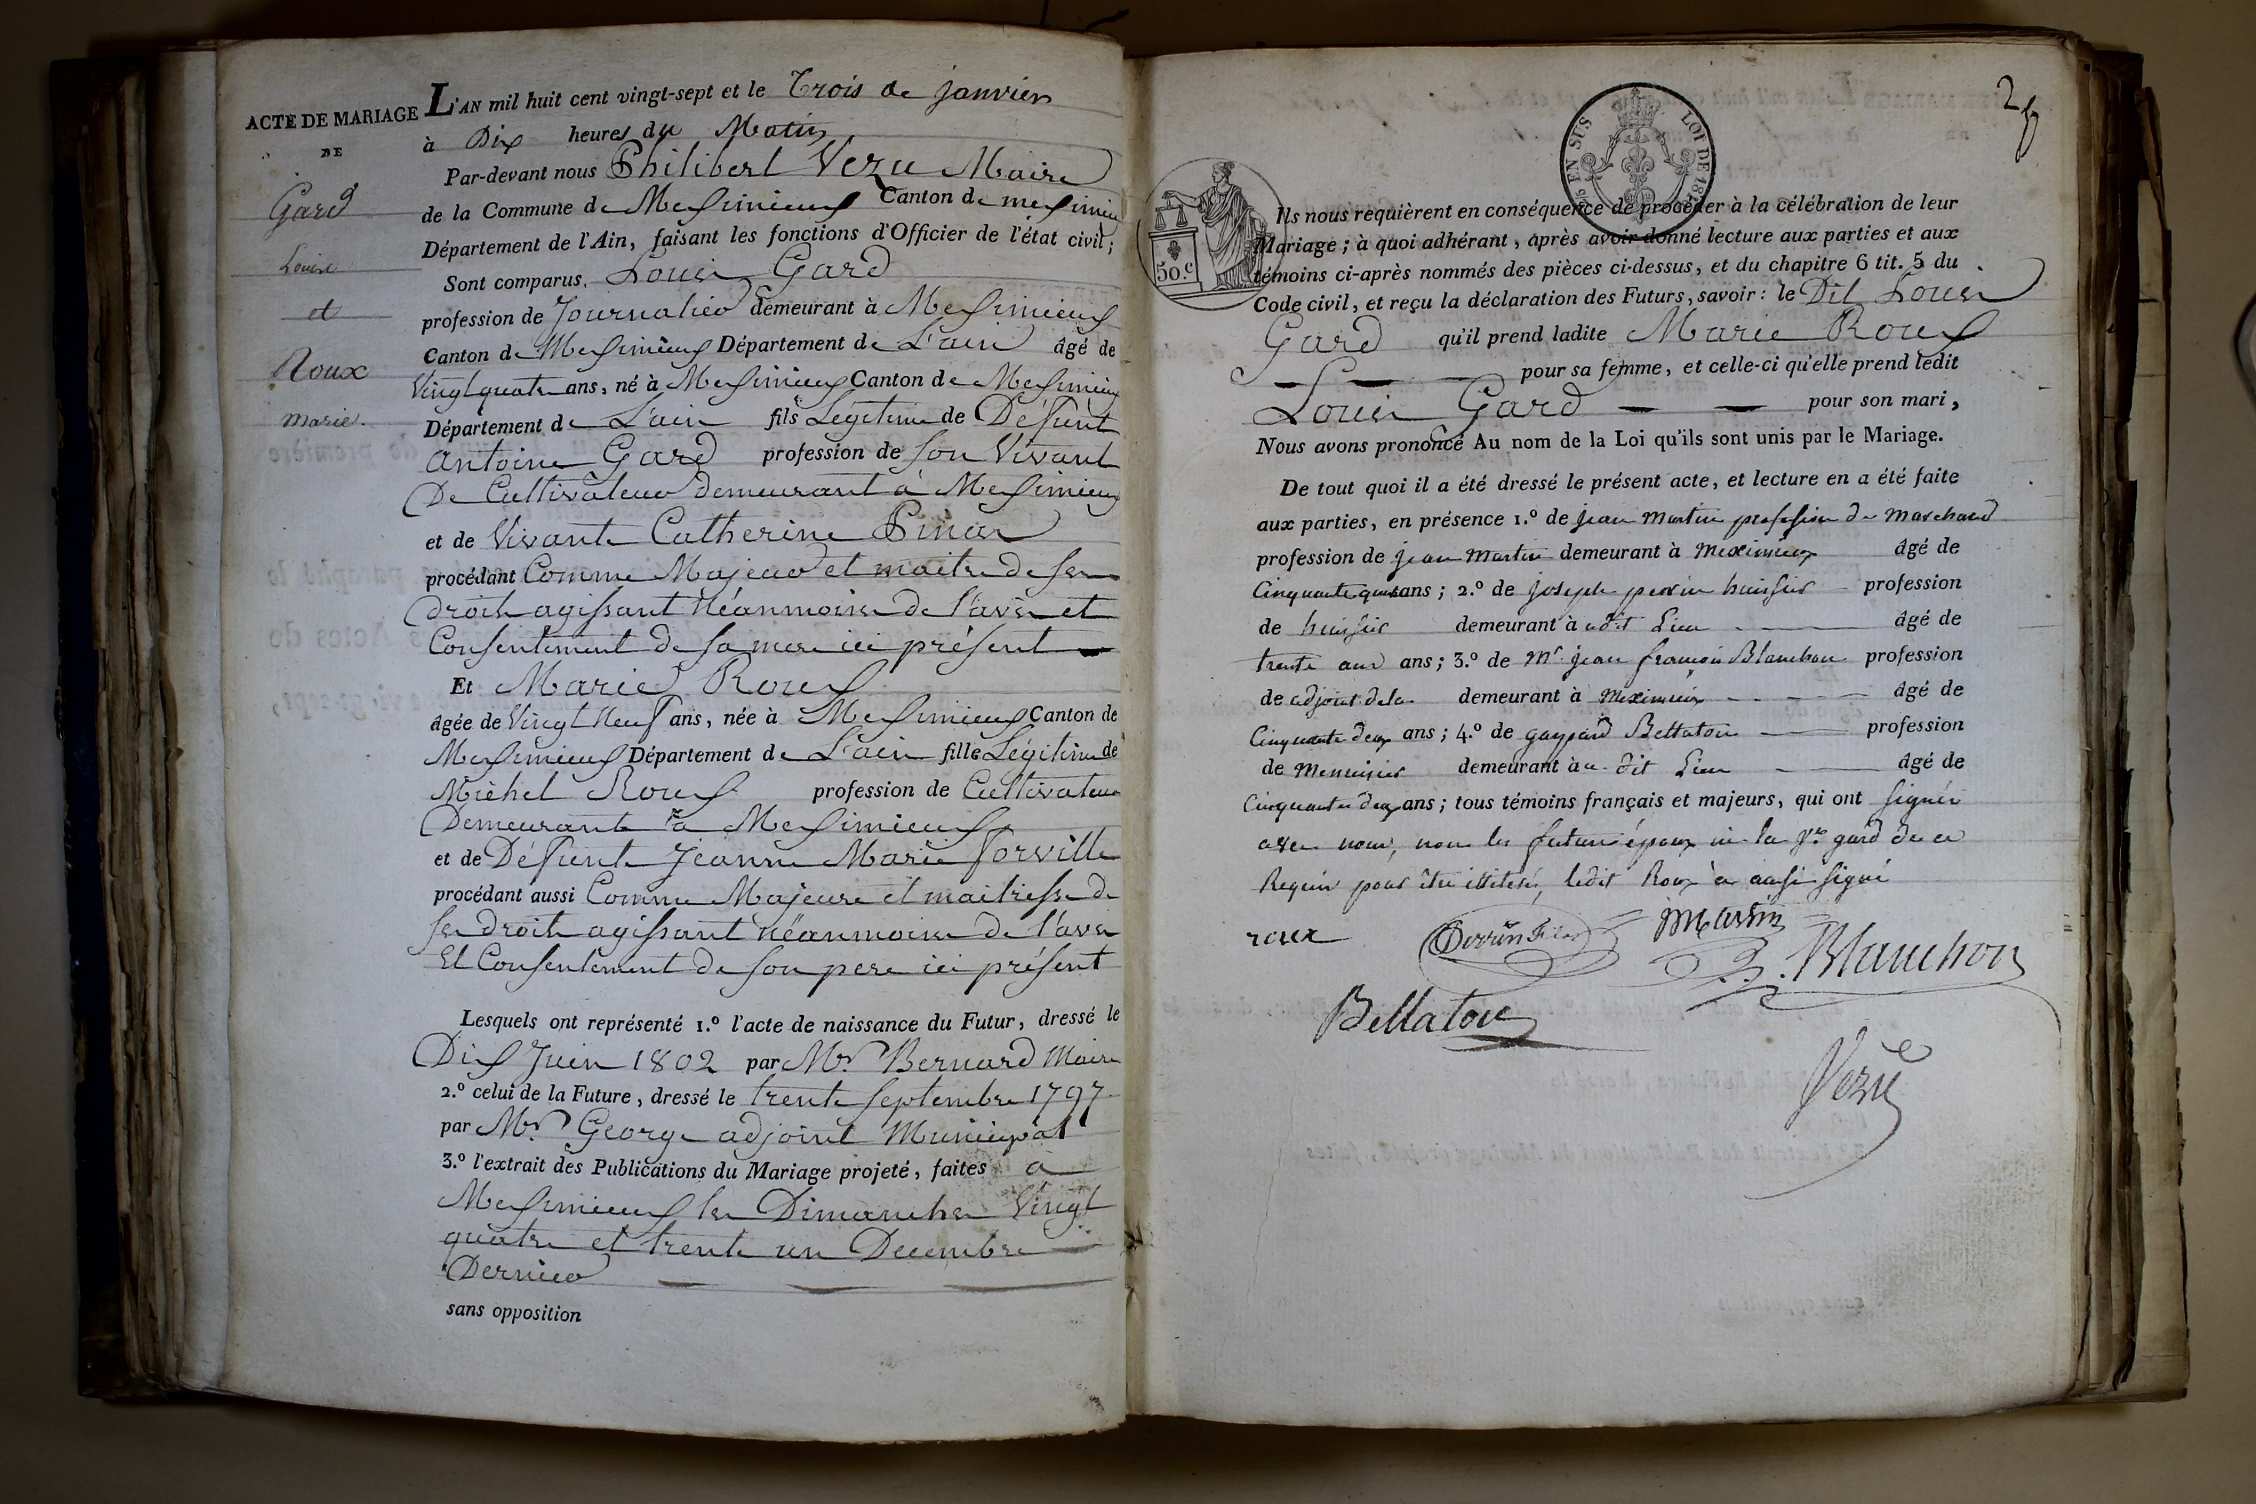 ACTE DE MARIAGE
DE
Gard
Louis
et
Roux
marie.
L'AN mil huit cent vingt-sept et le Trois de janvier
à Dix heures du Matin
Par-devant nous Philibert Vezu Maire
de la Commune de Meximieux Canton de meximieu
Département de l'Ain, faisant les fonctions d'Officier de l'état civil;
Sont comparus, Louis Gard
profession de Journalier demeurant à Meximieux
Canton de Meximieux Département de L'ain âgé de
Vingt quatre ans, né à Meximieux Canton de Meximieux
Département de L'ain fils Légitime de Défunt
antoine Gard profession de son Vivant
De Cultivateur demeurant à Meximieux
et de Vivante Catherine
procédant Comme Majeur et maitre de ses
droits agissant Néanmoins de l'avis et
Consentement de sa mere ici présent
Et Marie Roux
âgée de Vingt Neuf ans, née à Meximieux Canton de
Meximieux Département de L'ain fille Légitime de
Michel Roux profession de Cultivateur
Demeurant à Meximieux
et de Défunte Jeanne Marie Forville
procédant aussi Comme Majeure et maitresse de
ses droits agissant Néanmoins de l'avis
Et Consentement de son pere ici présent
Lesquels ont représenté 1.º l'acte de naissance du Futur, dressé le
Dix Juin 1802 par Mr. Bernard Maire
2.º celui de la Future, dressé le trente septembre 1797
par Mr. George adjoint Municipal
3.º l'extrait des Publications du Mariage projeté, faites à
Meximieux les Dimanches Vingt
quatre et trente un Decembre
Dernier
sans opposition
2
EN SUS LOI DE
50.c
Ils nous requièrent en conséquence de procéder à la célébration de leur
Mariage; à quoi adhérant, après avoir donné lecture aux parties et aux
témoins ci-après nommés des pièces ci-dessus, et du chapitre 6 tit. 5 du
Code civil, et reçu la déclaration des Futurs, savoir: le Dit Louis
Gard qu'il prend ladite Marie Roux
pour sa femme, et celle-ci qu'elle prend ledit
Louis Gard pour son mari,
Nous avons prononcé Au nom de la Loi qu'ils sont unis par le Mariage.
De tout quoi il a été dressé le présent acte, et lecture en a été faite
aux parties, en présence 1.º de jean Martin profession de Marchand
profession de jean Martin demeurant à Meximieux âgé de
Cinquante ans; 2.º de joseph perrin huissier profession
de huissier demeurant à udit Lieu âgé de
trente ans; 3.º de Mr. jean françois Blanchon profession
de adjoint dela demeurant à Meximieux âgé de
Cinquante deux ans; 4.º de gaspard Bellaton profession
de Menuisier demeurant àu dit Lieu âgé de
Cinquante deux ans; tous témoins français et majeurs, qui ont signés
avec nous, non les futurs époux ni la Ve. gard de ce
Requis pour être illiterés, ledit Roux à aussi signé
roux
Perrin Fils
JMartin
Blanchon
Bellaton
Vezu